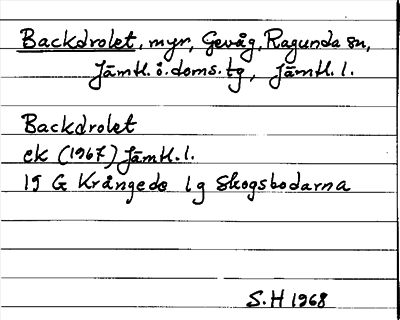 Backdrolet, myr, Gevåg, Ragunda sn,
Jämtl. ö. doms. tg, Jämtl. l.
Backdrolet
ek (1967) Jämtl. l.
19 G Krångede 1g Skogsbodarna
S.H 1968